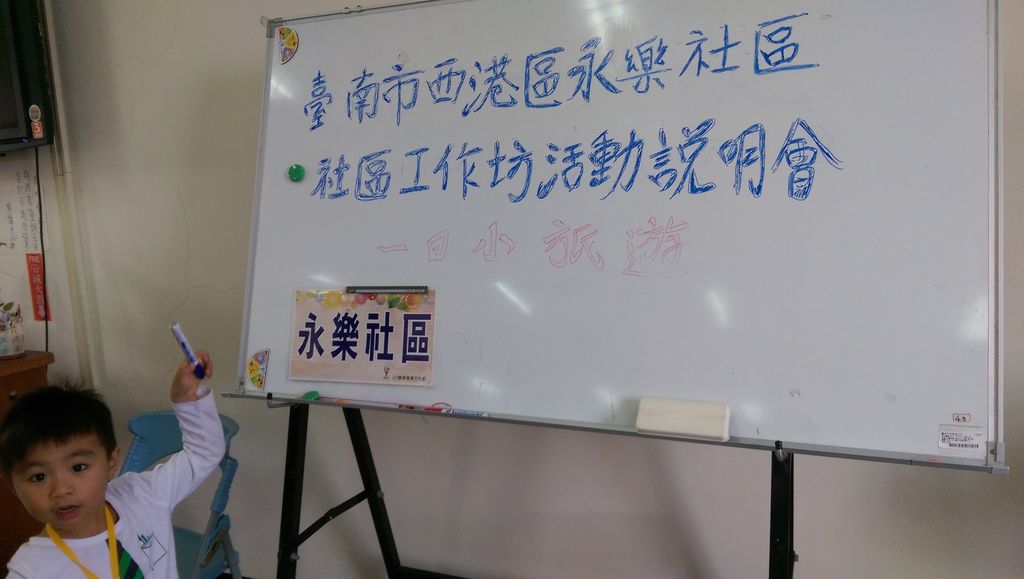 臺南市西港區永樂社區
社區工作坊活動說明會
一日小旅遊
永樂社區
43